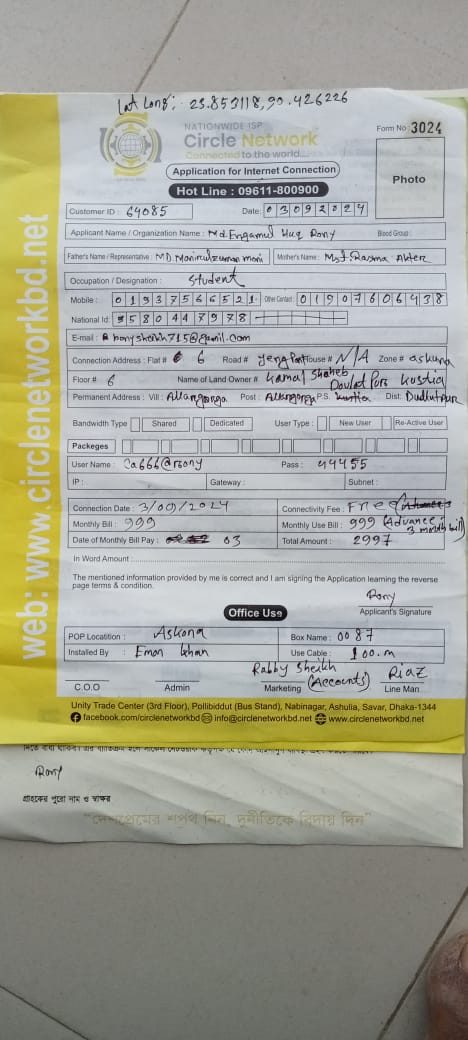 Lat Long: 23.853118, 90.426226
NATIONWIDE ISP
Circle Network
Connected to the world...
Form No: 3024
Application for Internet Connection
Hot Line : 09611-800900
Photo
Customer ID : 64085
Date: 03092024
Applicant Name / Organization Name : Md Engamul Huq Rony Blood Group:
Father's Name / Representative : MD Monirulzzaman moni Mother's Name : Mst. Rasma Akter
Occupation / Designation : Student
Mobile : 01937566521 Other Contact : 01907606438
National Id: 9580447978
E-mail : honysheikh715@gamil.com
Connection Address : Flat # 6 Road # House # N/A Zone # askona
Floor # 6 Name of Land Owner # Kamal Shaheb
Daulat Pors Kustia
Permanent Address : Vill : Allardonga Post : Allardonga P.S. Dist: Dudlutpur
Bandwidth Type Shared Dedicated User Type : New User Re-Active User
Packeges
User Name : Ca666@rony Pass : 44455
IP : Gateway : Subnet :
Connection Date : 3/09/2024 Connectivity Fee : Free
Monthly Bill : 999 Monthly Use Bill : 999 (Advance 3 month bill)
Date of Monthly Bill Pay : 03 Total Amount : 2997
In Word Amount :
The mentioned information provided by me is correct and I am signing the Application learning the reverse
page terms & condition.
Rony
Office Use
Applicant's Signature
POP Locatition : Askona Box Name : 0087
Installed By : Emon khan Use Cable : 100.m
Rabby Sheikh (Accounts) Riaz
C.O.O Admin Marketing Line Man
Unity Trade Center (3rd Floor), Pollibiddut (Bus Stand), Nabinagar, Ashulia, Savar, Dhaka-1344
facebook.com/circlenetworkbd info@circlenetworkbd.net www.circlenetworkbd.net
web: www.circlenetworkbd.net
Rony
গ্রাহকের পুরো নাম ও স্বাক্ষর
"দেশপ্রেমের শপথ নিন, দুর্নীতিকে বিদায় দিন"